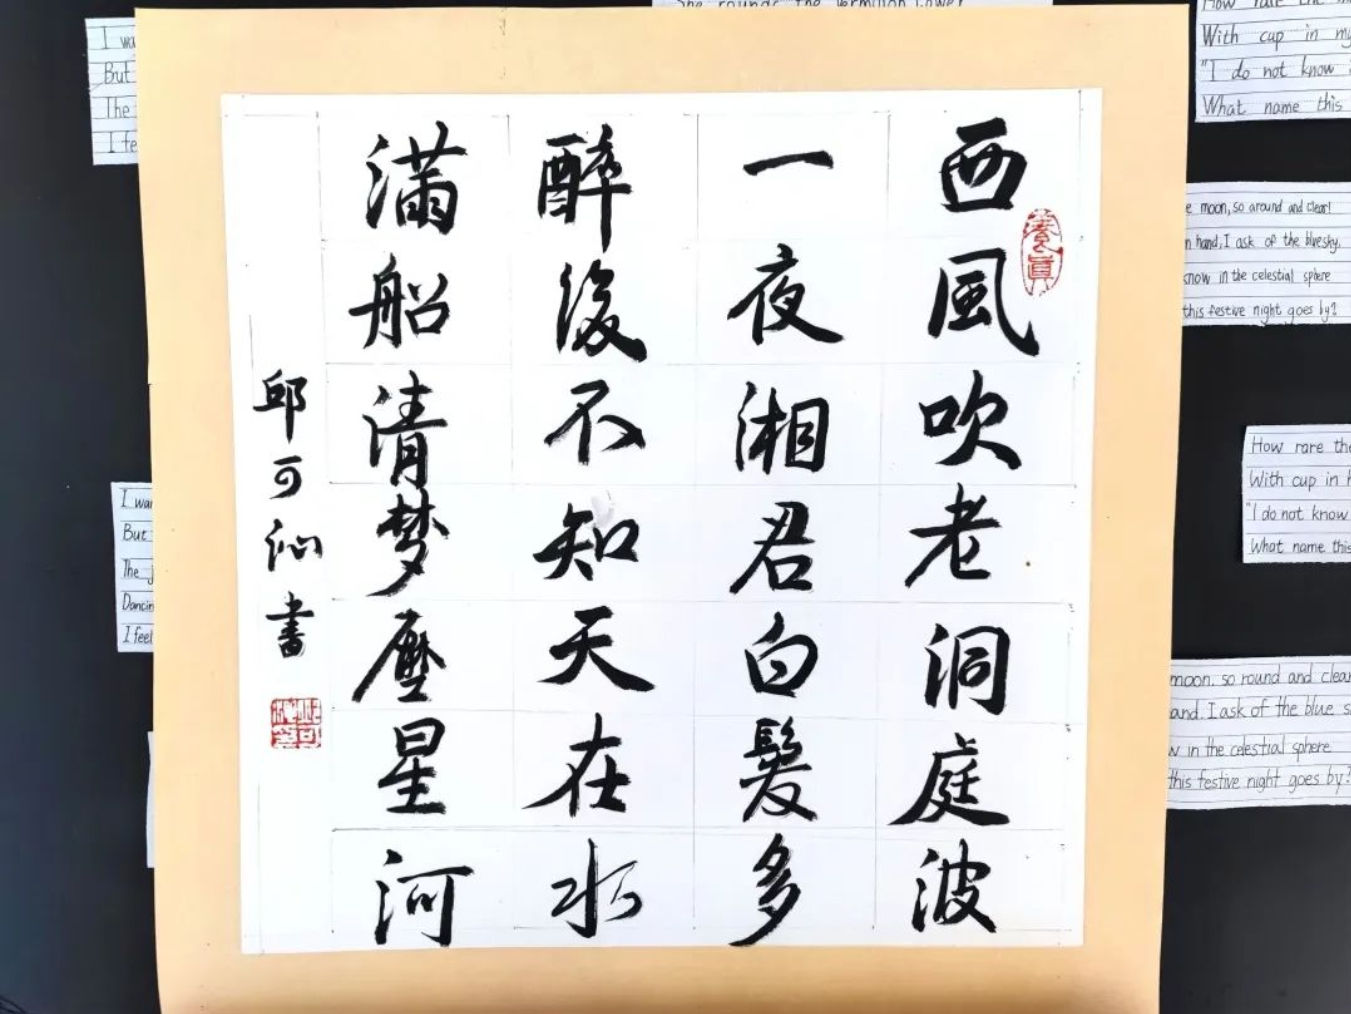 西風吹老洞庭波
一夜湘君白髮多
醉後不知天在水
滿船清梦壓星河
邱可沁書
養真
She rounds the vermilion tower
I wa
But
The
I fe
I wa
But
The j
Dancin
I feel
How rare the
With cup in my
"I do not know
What name this
e moon, so around and clear!
n hand, I ask of the bluesky.
know in the celestial sphere
this festive night goes by?
How rare the
With cup in h
"I do not know
What name this
moon. so round and clear
and. I ask of the blue s
w in the celestial sphere
this festive night goes by?